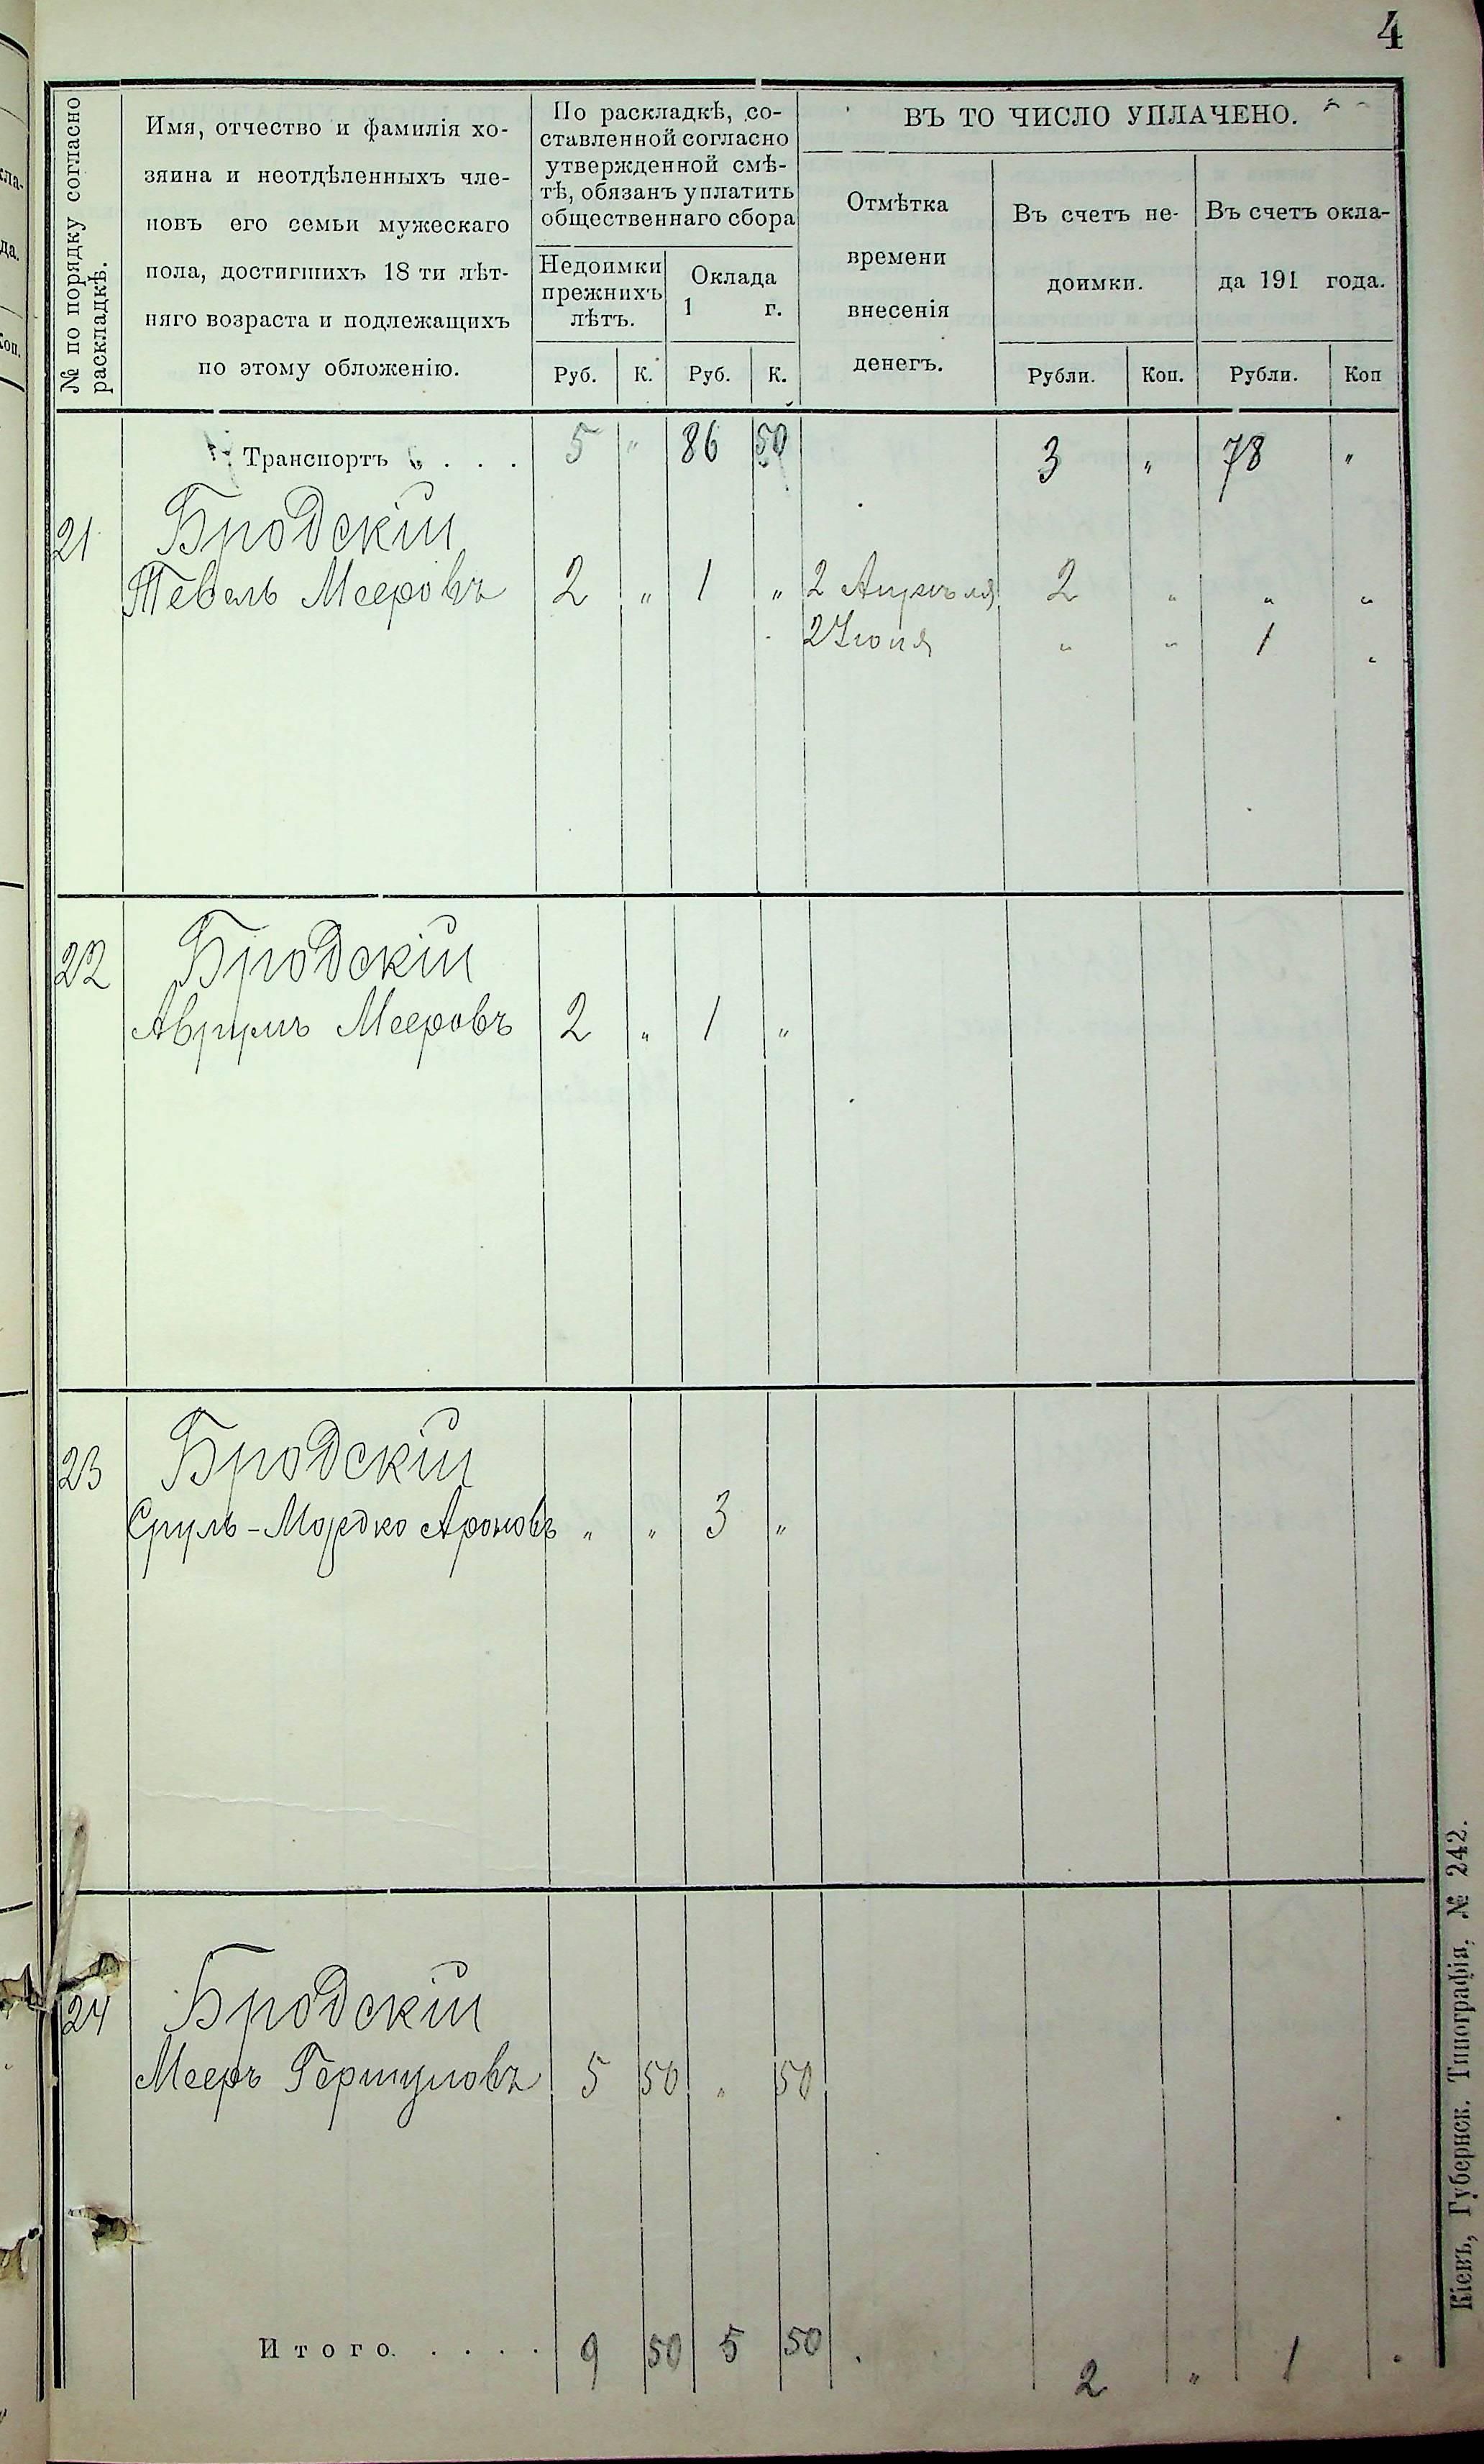 4
№ по порядку согласно
раскладкѣ.
Имя, отчество и фамилія хо-
зяина и неотдѣленныхъ чле-
новъ его семьи мужескаго
пола, достигшихъ 18 ти лѣт-
няго возраста и подлежащихъ
по этому обложенію.
По раскладкѣ, со-
ставленной согласно
утвержденной смѣ-
тѣ, обязанъ уплатить
общественнаго сбора
Недоимки
прежнихъ
лѣтъ.
Оклада
1 г.
Руб. К. Руб. К.
ВЪ ТО ЧИСЛО УПЛАЧЕНО.
Отмѣтка
времени
внесенія
денегъ.
Въ счетъ не-
доимки.
Рубли. Коп.
Въ счетъ окла-
да 191 года.
Рубли. Коп
Транспортъ . . . . 5 " 86 50 3 " 78 "
21 Бродскій
Тевель Мееровъ 2 " 1 " 2 Апрѣля 2 " " "
2 Іюня " " 1 "
22 Бродскій
Аврумъ Мееровъ 2 " 1 "
23 Бродскій
Сруль-Мордко Ароновъ " " 3 "
24 Бродскій
Мееръ Гершуновъ 5 50 " 50
Итого. . . . . 9 50 5 50 2 " 1 "
Кіевъ, Губернск. Типографія, № 242.